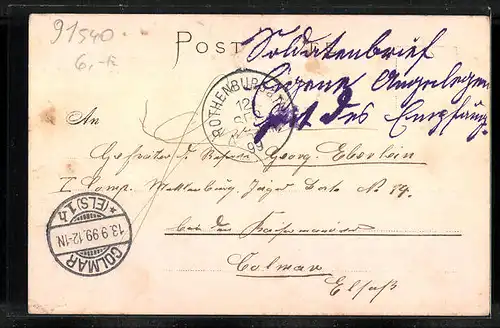 91540
6,-
POST
Soldatenbrief
Eigene Angelegen
des Empfäng
ROTHENBURG
12
SEP
99
An
Gefreiter d. Reserve Georg Eberlein
I Comp. Mecklenburg. Jäger Batl. N. 14.
bei den Kaisermanöver
Colmar
Elsaß
COLMAR
13.9.99.12-1N
*(ELS)1h